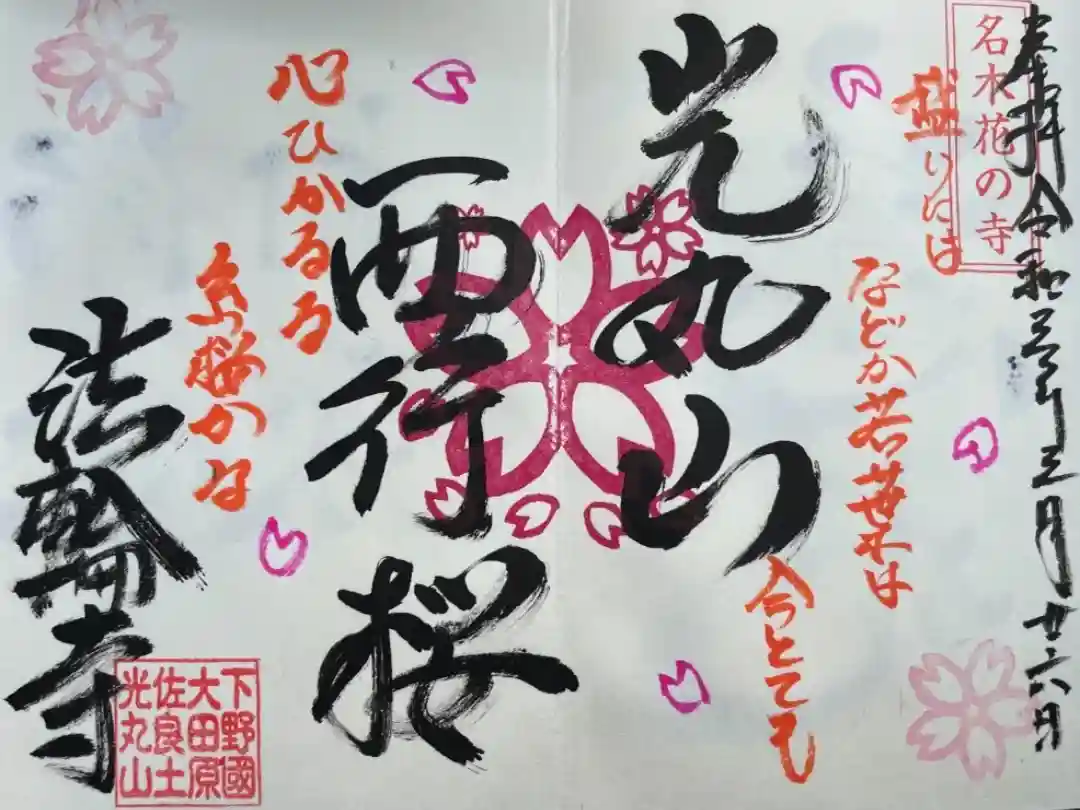 奉拝令和三年三月廿六日
名木花の寺
盛りには
などか若葉は
今とても
光丸山
西行桜
心ひかるる
糸桜かな
法輪寺
下野國
大田原
佐良土
光丸山